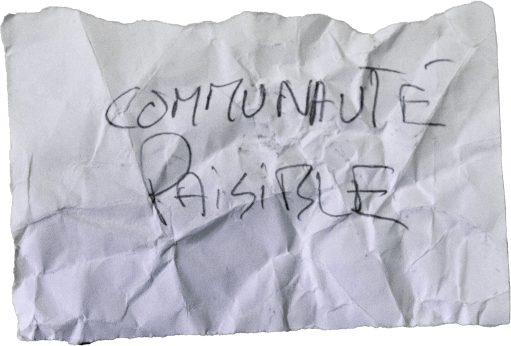 COMMUNAUTÉ
PAISIBLE